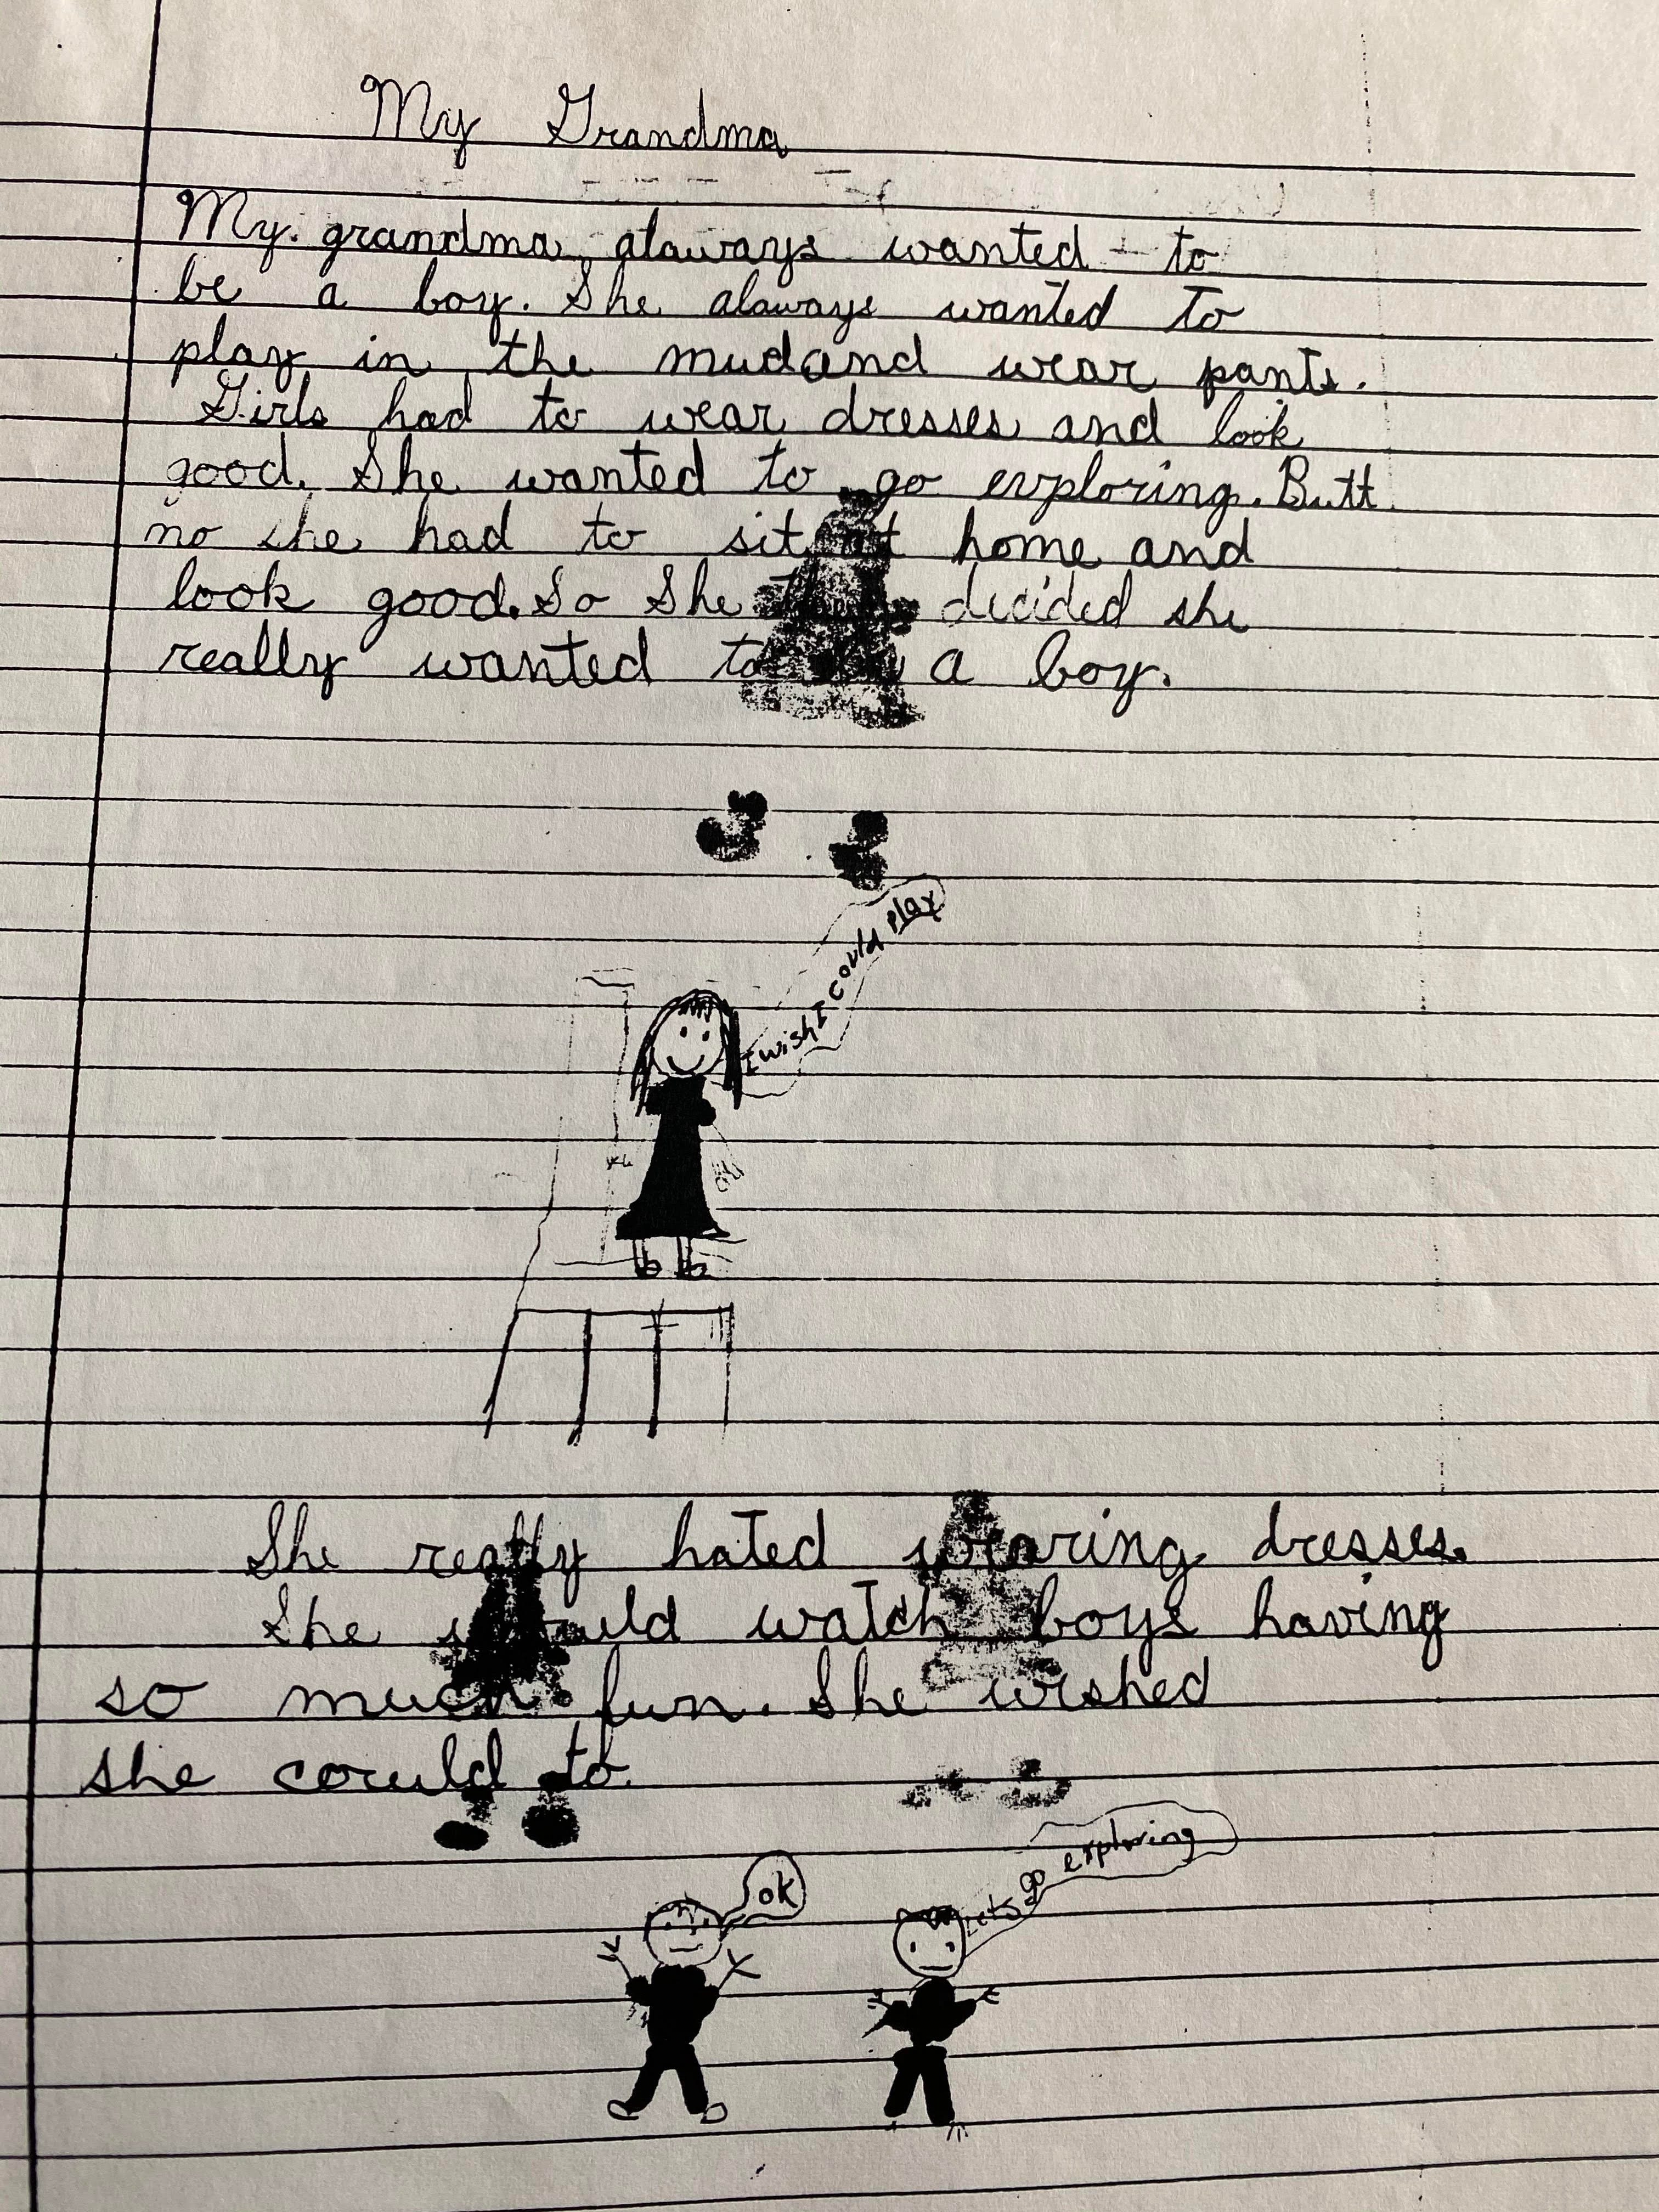 My Grandma
My grandma alaways wanted to
be a boy. She alaways wanted to
play in the mud and wear pants.
Girls had to wear dresses and look
good. She wanted to go exploring. Butt
no she had to sit at home and
look good. So She decided she
really wanted to a boy.
I wish I could play
She really hated wearing dresses.
She would watch boys having
so much fun. She wished
she could to.
ok
Lets go exploring